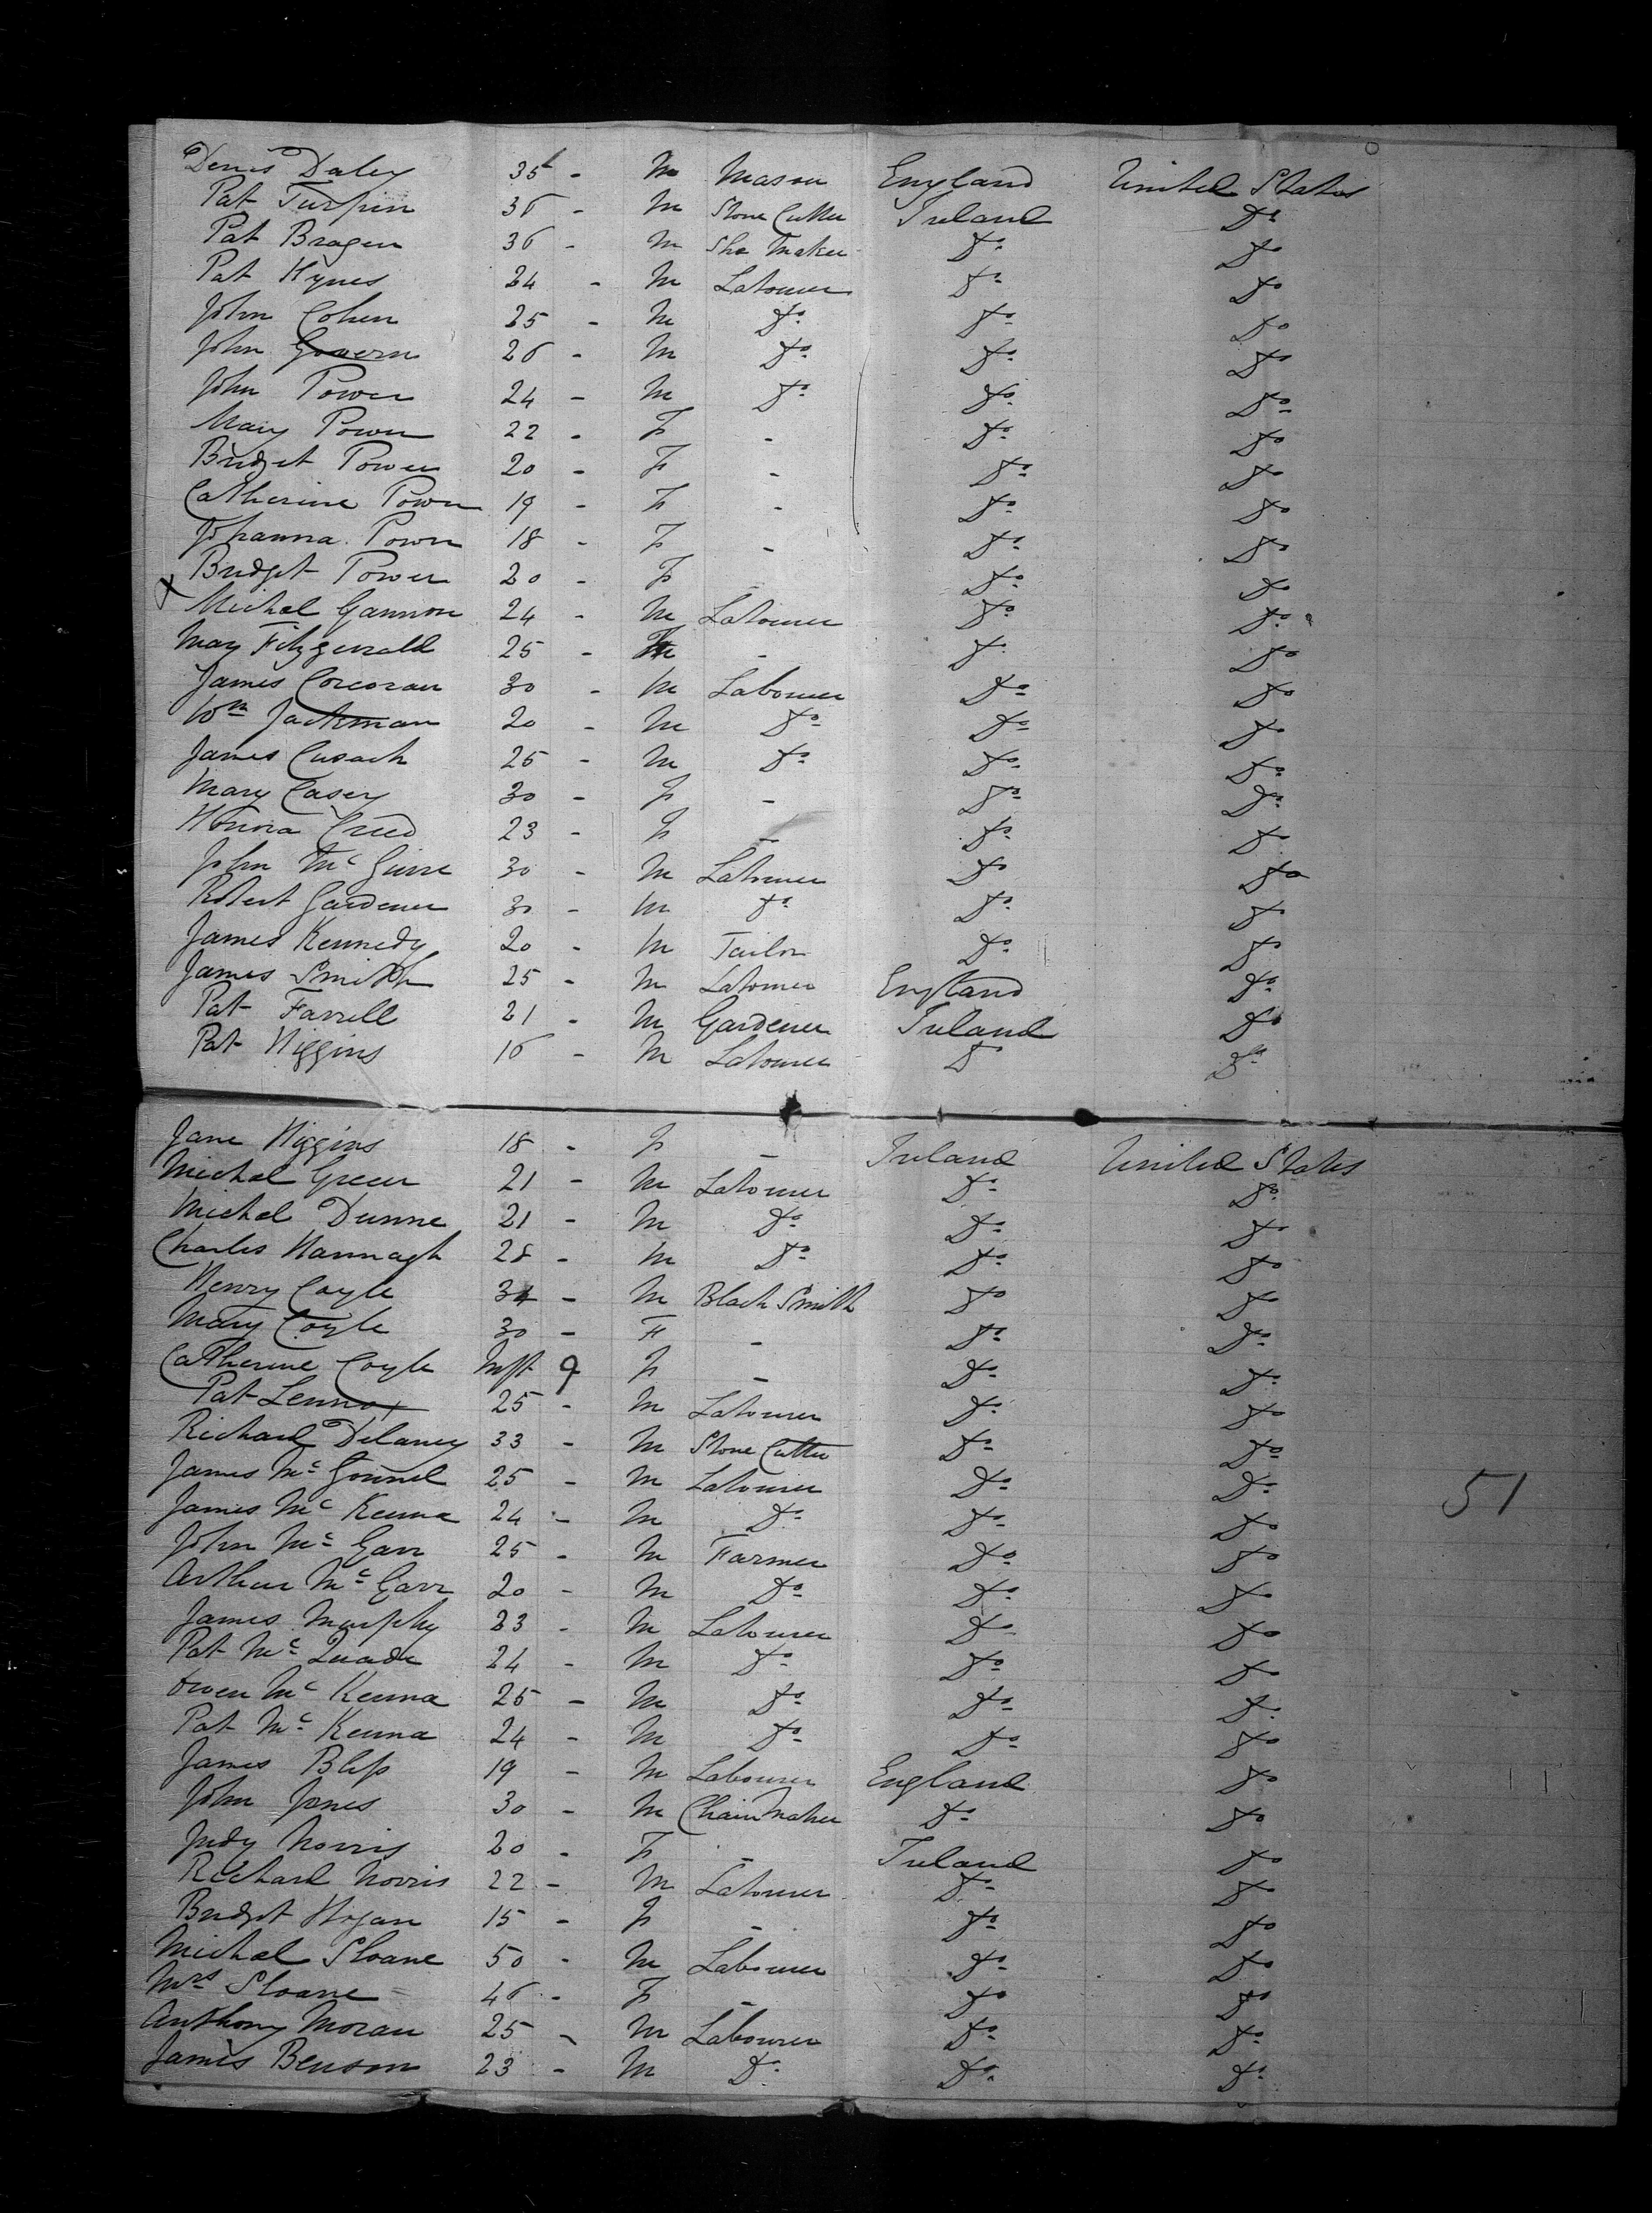 Denis Daley 35 - M Mason England United States
Pat Turpin 36 - M Stone Cutter Ireland Do
Pat Bragen 36 - M Sho Maker Do Do
Pat Hynes 24 - M Labourer Do Do
John Cohen 25 - M Do Do Do
John Govern 26 - M Do Do Do
John Power 24 - M Do Do Do
Mary Power 22 - F - Do Do
Bridget Power 20 - F - Do Do
Catherine Power 19 - F - Do Do
Johanna Power 18 - F - Do Do
Bridget Power 20 - F - Do Do
x Michal Gannon 24 - M Labourer Do Do
Mary Fitzgerald 25 - F - Do Do
James Corcoran 30 - M Labourer Do Do
Wm Jackman 20 - M Do Do Do
James Cusack 25 - M Do Do Do
Mary Casey 30 - F - Do Do
Honora Creed 23 - F - Do Do
John McGuire 30 - M Labourer Do Do
Robert Gardener 30 - M Do Do Do
James Kennedy 20 - M Tailor Do Do
James Smith 25 - M Labourer England Do
Pat Farrell 21 - M Gardener Ireland Do
Pat Higgins 16 - M Labourer Do Do
Jane Higgins 18 - F - Ireland United States
Michal Green 21 - M Labourer Do Do
Michal Dunne 21 - M Do Do Do
Charles Hannagh 28 - M Do Do Do
Henry Coyle 34 - M Black Smith Do Do
Mary Coyle 30 - F - Do Do
Catherine Coyle Inft 9 F - Do Do
Pat Lennox 25 - M Labourer Do Do
Richard Delaney 33 - M Stone Cutter Do Do
James McGonnel 25 - M Labourer Do Do
James McKenna 24 - M Do Do Do
John McGarr 25 - M Farmer Do Do
Arthur McGarr 20 - M Do Do Do
James Murphy 23 - M Labourer Do Do
Pat McQuade 24 - M Do Do Do
Owen McKenna 25 - M Do Do Do
Pat McKenna 24 - M Do Do Do
James Bless 19 - M Labourer England Do
John Jones 30 - M Chain Maker Do Do
Judy Norris 20 - F - Ireland Do
Richard Norris 22 - M Labourer Do Do
Bridget Hogan 15 - F - Do Do
Michal Sloane 50 - M Labourer Do Do
Mrs Sloane 46 - F - Do Do
Anthony Moran 25 - M Labourer Do Do
James Benson 23 - M Do Do Do
51